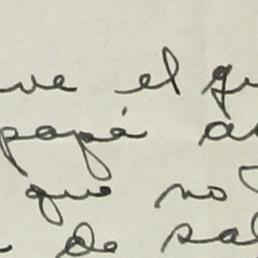 ve el qu
papá a
que no
de sal